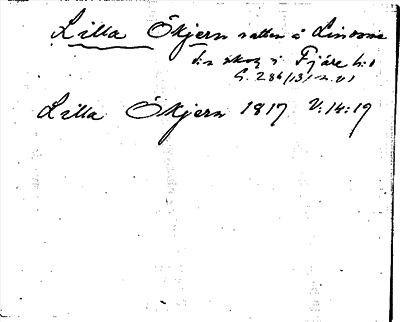 Lilla Ökjern vatten å Lindome
s:n skog i Fjäre h:d
G. 286/131 n. v 1
Lilla Ökjern 1817 V: 14:19